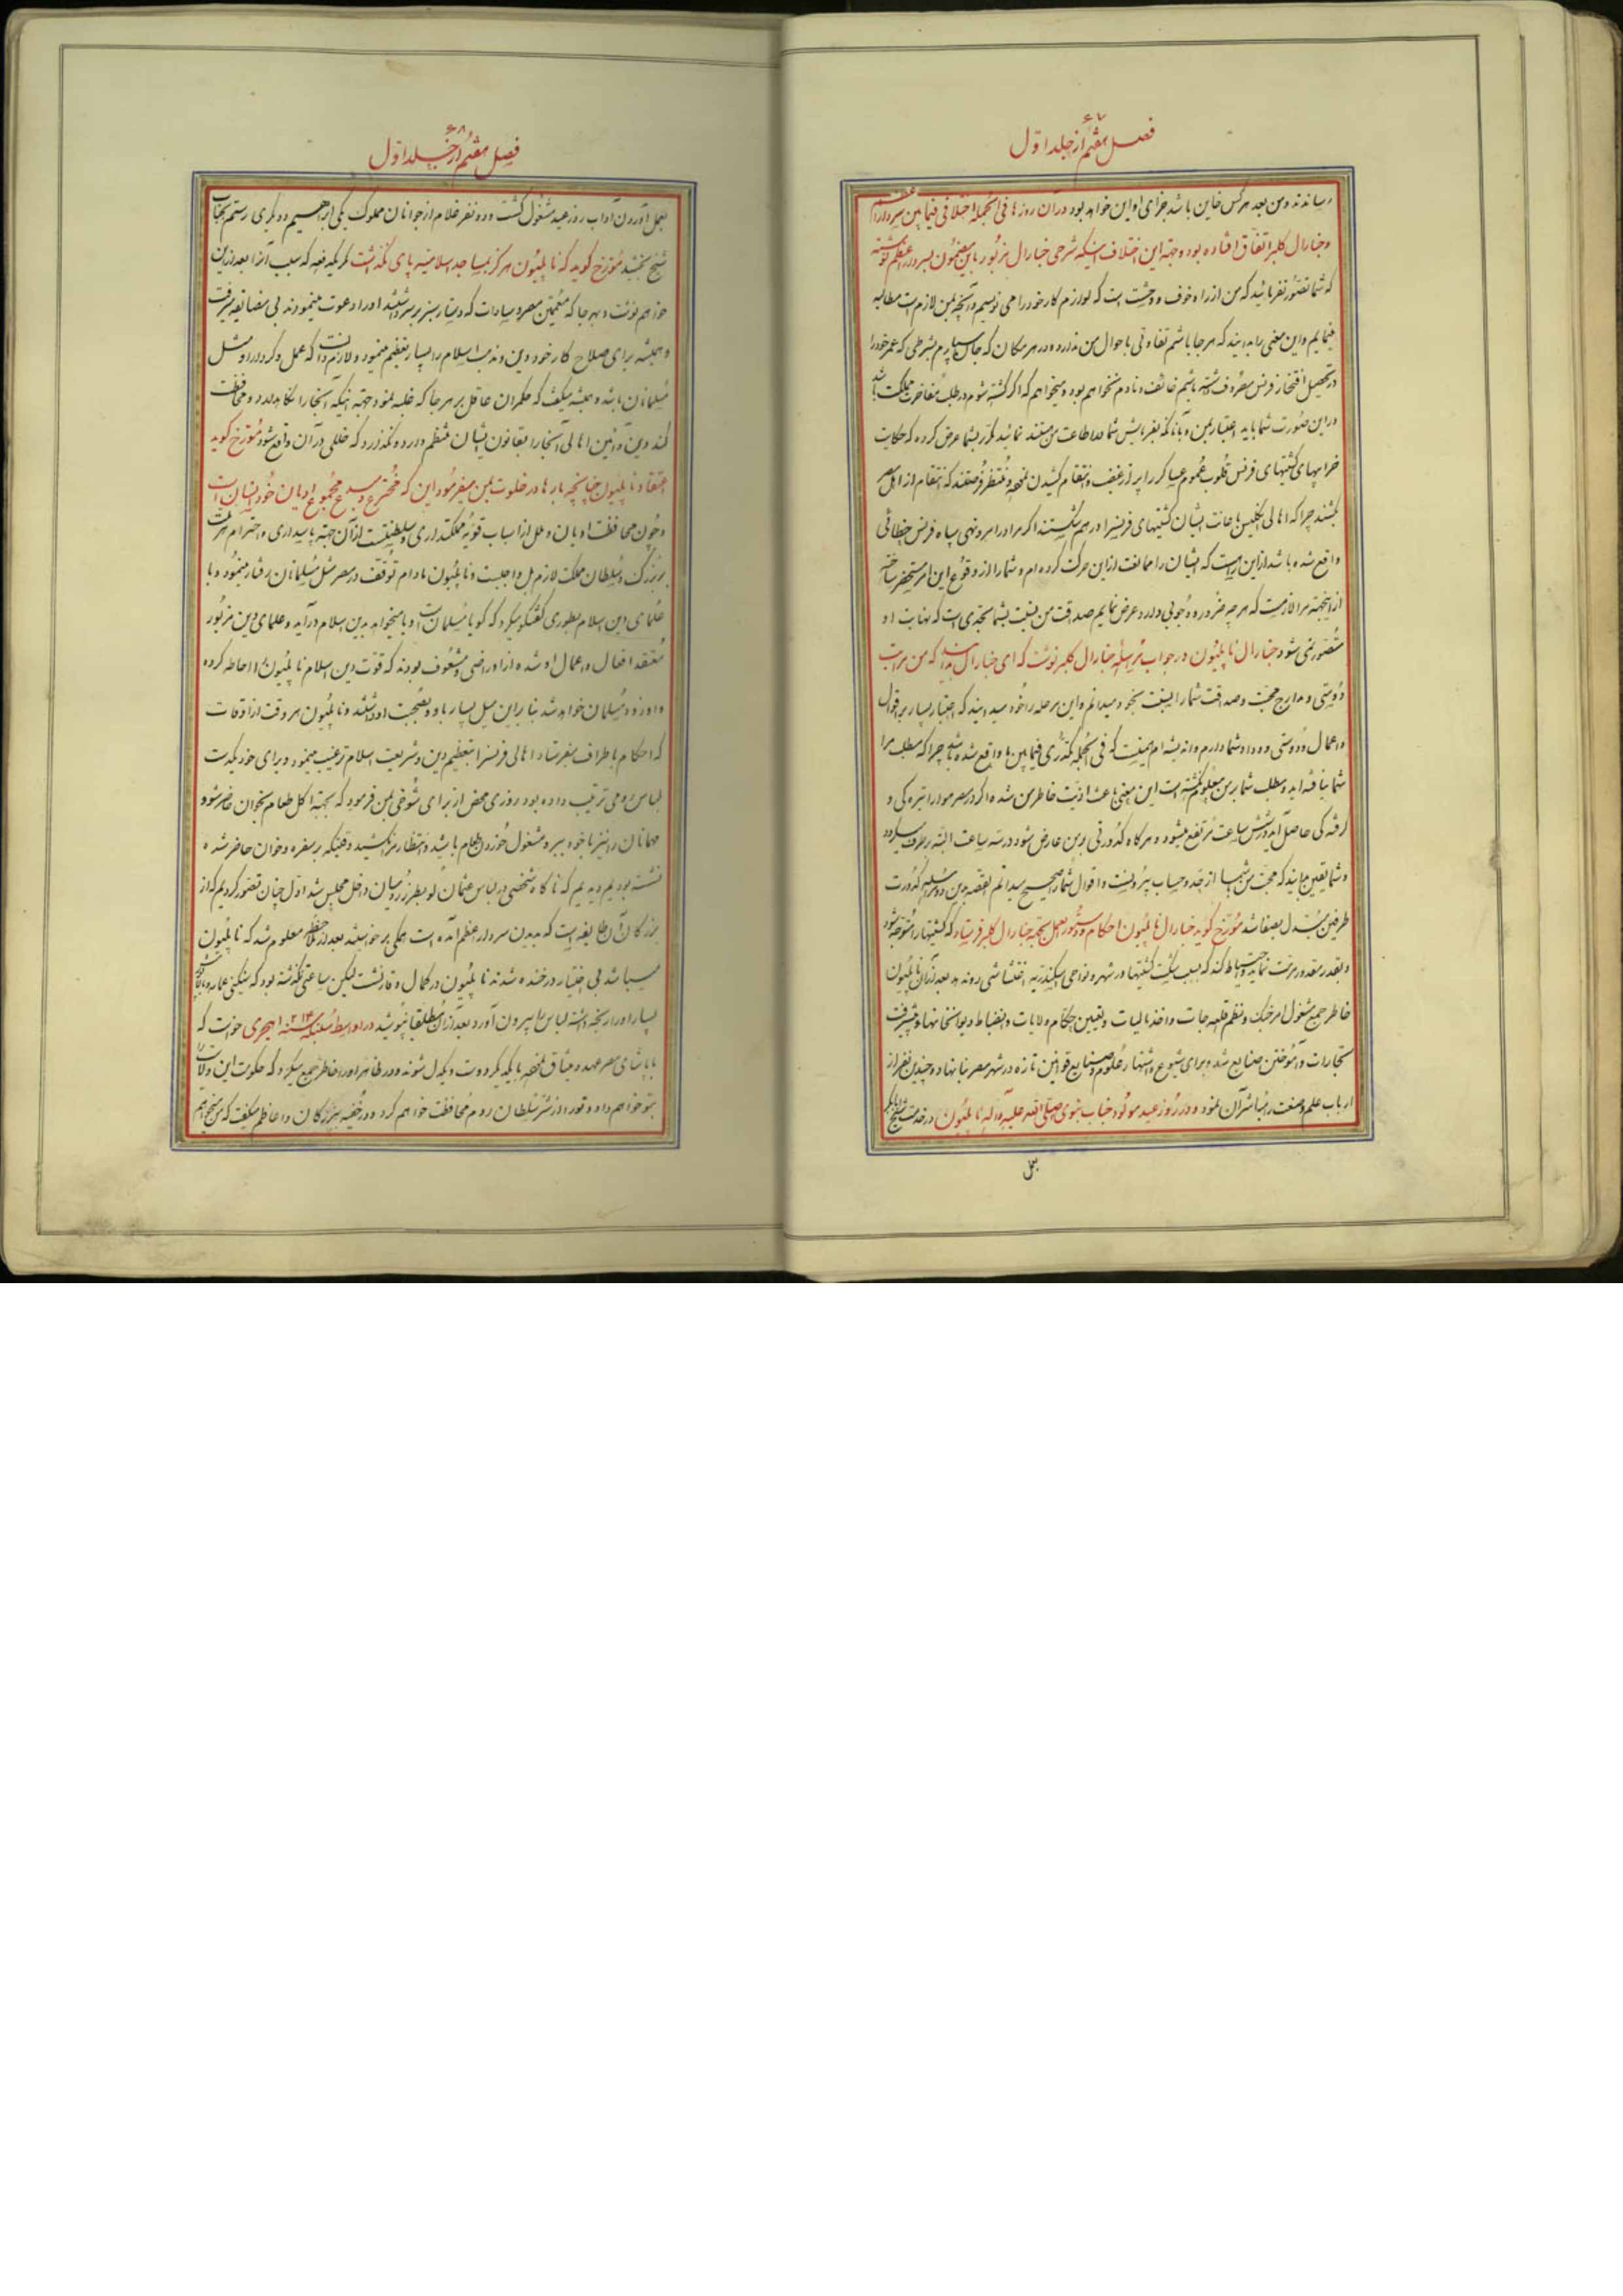 ۶۷
فصل هفتم از جلد اول
رساندند و من بعد هرکس خاین باشد جزای او این خواهد بود در آن روزها فی الجمله اختلافی فیمابین سردار اعظم
و جنارال کلبر اتفاق افتاده بود و جهة این اختلاف اینکه شرحی جنارال مزبور باین مضمون بسردار اعظم نوشته
که شما تصور نفرمائید که من از راه خوف و وحشت است که لوازم کار خود را می نویسم و آنچه بمن لازم است مطالبه
مینمایم و این معنی را بدانید که هر جا باشم تفاوتی باحوال من ندارد و در هر مکان که جان بسپارم بشرطی که عمر خود را
در تحصیل افتخار فرنس مصروف داشته باشم خائف و نادم نخواهم بود و میخواهم که اگر کشته شوم در طلب مفاخرت مملکت باشد
در این صورت شما باید اعتبار بمن و بآنانکه بفرمایش شما اطاعت من میکنند نمائید مکرر بشما عرض کرده که حکایت
خرابیهای کشتیهای فرنس قلوب عموم عساکر را پر از غیظ و انتقام کشیدن نموده و منتظر فرصتند که انتقام از اهل مصر
بکشند چرا که اهالی انگلیس باعانت ایشان کشتیهای فرنسه را درهم شکستند اگر مرا در امر و نهی سپاه فرنس خطائی
واقع شده باشد از این راه است که ایشان را ممانعت از این حرکت کرده ام و شما را از وقوع این امر مستحضر ساخته
از اینجهة مرا لازمست که هر چه ضرور و وجوبی دارد عرض نمایم صداقت من نسبت بشما بحدی است که نهایت او
متصور نمی شود جنارال ناپلیون در جواب مراسله جنارال کلبر نوشت که ای جنارال بدانید که من مراتب
دوستی و مدارج محبت و صداقت شما را نسبت بخود میدانم و این مرحله را خود میدانید که اعتبار بسیار بر اقوال
و اعمال و دوستی و وداد شما دارم و اندیشه ام اینست که فی الجمله تکدری فیمابین ما واقع شده باشد چرا که مطلب مرا
شما نیافته اید و مطلب شما بر من معلوم نگشته است این معنی باعث اذیت خاطر من شده اگر در مصر موا را تیره کی و
گرفته کی حاصل آید در شش ساعت مرتفع میشود و هرگاه کدورتی بر من عارض شود در سه ساعت البته برطرف میگردد
و شما یقین بدانید که محبت من بشما از حد و حساب بیرونست و اقوال شما را صحیح میدانم القصه بدین دو مراسله کدورت
طرفین مبدل بصفا شد مورخ گوید جنارال ناپلیون احکام و دستورالعمل بجهة جنارال کلبر فرستاد که کشتیها را متوجه شود
و بقدر مقدور مرمت نماید و احتیاط کند که بسبب شکست کشتیها در شهر و نواحی اسکندریه اغتشاشی روندهد بعد از آن ناپلیون
خاطر جمع مشغول امر جنک و نظم قلعه جات و اخذ مالیات و تعیین حکام ولایات و انضباط دیوانخانها و پیشرفت
تجارات و آموختن صنایع شد و برای شیوع و اشتهار علوم و صنایع قوانین تازه در شهر مصر بنا نهاد و چندین نفر از
ارباب علم و صنعت را مباشر آن نمود و در روز عید مولود جناب نبوی صلی الله علیه و آله ناپلیون در خدمت شیخ البکر
بعمل
۶۸
فصل هفتم از جلد اول
بعمل آوردن آداب روز عید مشغول گشت و دو نفر غلام از جوانان مملوک یکی ابراهیم و دیگری رستم بجناب
شیخ بخشید مورخ گوید که ناپلیون هرگز بمساجد اسلامیه پای نگذاشت مگر یکدفعه که سبب آنرا بعد از این
خواهم نوشت و بهر جا که معممین مصر و سادات که دستار سبز بر سر داشتند او را دعوت مینمودند بی مضایقه میرفت
و همیشه برای صلاح کار خود دین و مذهب اسلام را بسیار تعظیم مینمود و لازم دانست که عمل و کردار او مثل
مسلمانان باشد و همیشه میگفت که حکمران عاقل بر هر جا که غلبه نمود جهة اینکه آنجا را نگاهدارد و محافظت
کند دین و آئین اهالی آنجا را بقانون ایشان منظم دارد و نگذارد که خللی در آن واقع شود مورخ گوید
اعتقاد ناپلیون چنانچه بارها در خلوت بمن میفرمود این که مخترع و مبدع مجموع ادیان خود ایشان است
و چون محافظت ادیان و ملل از اسباب قویه مملکتداری و سلطنت است از آن جهة پاسداری و احترام هر ملت
بر بزرگ و سلطان مملکت لازم بل واجبست و ناپلیون مادام توقف در مصر مثل مسلمانان رفتار مینمود و با
علمای دین اسلام بطوری گفتگو میکرد که گویا مسلمان است و یا میخواهد بدین اسلام در آید و علمای دین مزبور
معتقد افعال و اعمال او شده از او راضی و مشعوف بودند که قوت دین اسلام ناپلیون را احاطه کرده
و او زود مسلمان خواهد شد بنابراین میل بسیار با او و بصحبت او داشتند و ناپلیون هر وقت از اوقات
که احکام باطراف میفرستاد اهالی فرنسه را بتعظیم دین و شریعت اسلام ترغیب مینمود و برای خود یکدست
لباس رومی ترتیب داده بود روزی محض از برای شوخی بمن فرمود که بجهة اکل طعام بخوان حاضر شو و
مهمانان را نیز با خود ببر و مشغول خوردن طعام باشید و انتظار مرا نکشید وقتیکه بر سفره و خوان حاضر شده
نشسته بودیم دیدیم که ناگاه شخصی در لباس عثمانلو بطرز رومیان داخل مجلس شد اول چنان تصور کردیم که از
بزرگان آن طایفه است که بدیدن سردار اعظم آمده است همگی برخواستند بعد از ملاحظه معلوم شد که ناپلیون
میباشد بی اختیار در خنده شدند ناپلیون در کمال وقار نشست لیکن ساعتی نگذشته بود که سنگینی عمامه و لباس
بسیار او را رنجه داشته لباس را بیرون آورد بعد از آن مطلقا نپوشید در اواسط سنه ۱۲۱۳ هجری خواست که
با پاشای مصر عهد و میثاق نموده با یکدیگر دوست و یکدل شوند و در ظاهر او را خاطر جمع میکرد که حکومت این ولایت را
بتو خواهم داد و تو را از شر سلطان روم محافظت خواهم کرد و در خفیه ببزرگان و اعاظم میگفت که من میخواهم